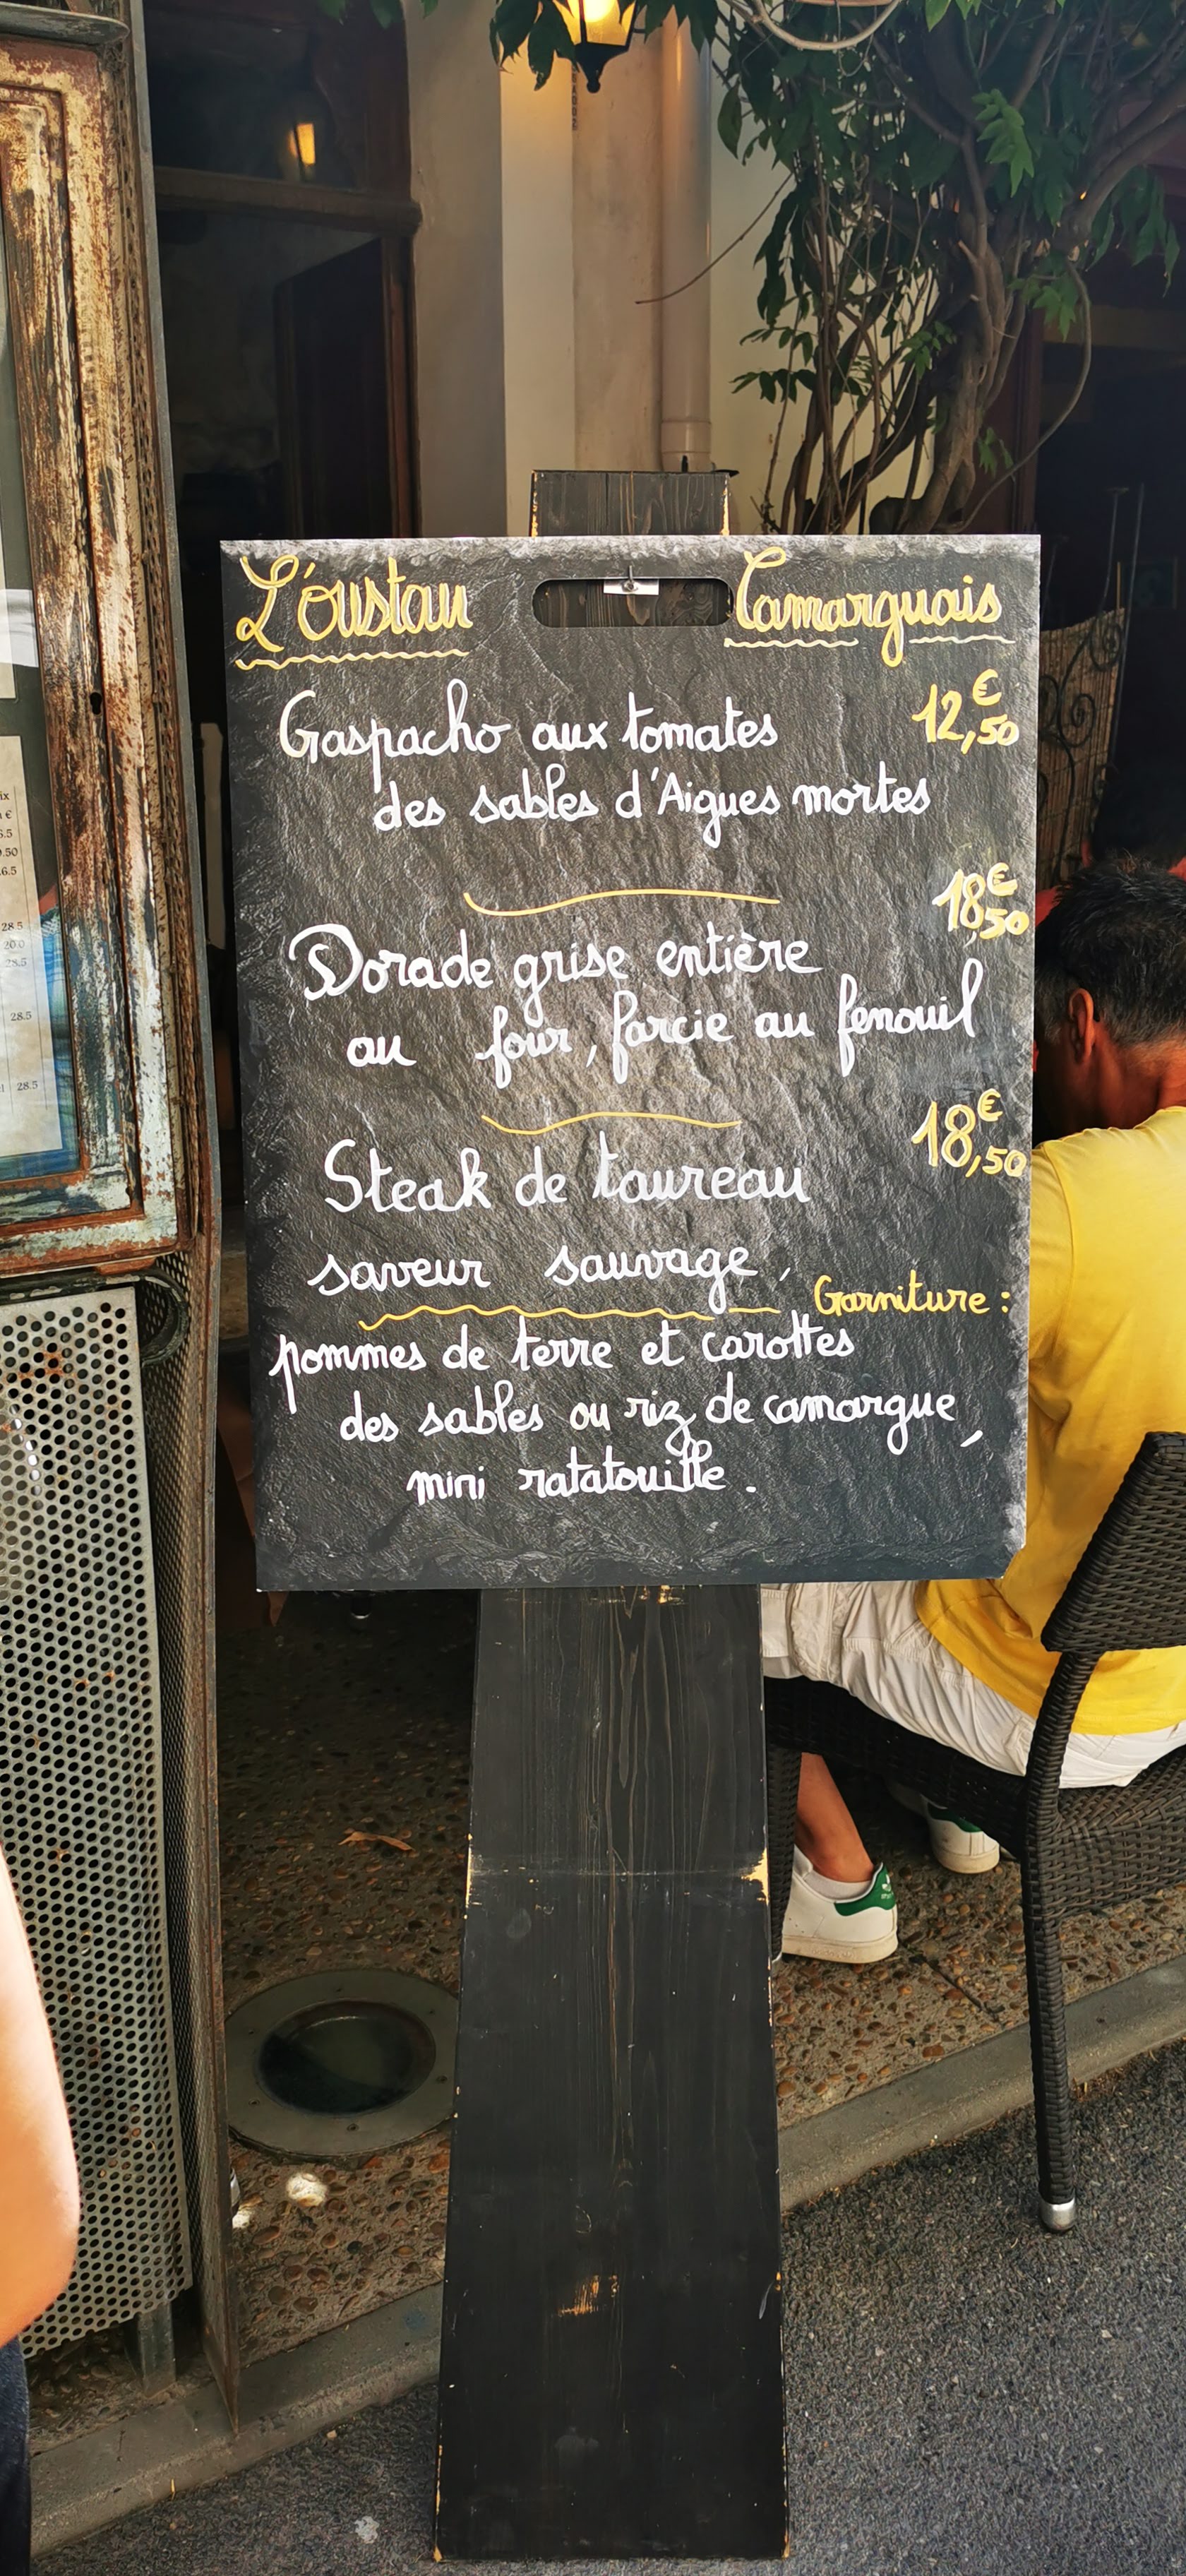 L'oustau Camarguais
Gaspacho aux tomates 12€,50
des sables d'Aigues mortes
18€,50
Dorade grise entière
au four, farcie au fenouil
18€,50
Steak de taureau
saveur sauvage,
Garniture :
pommes de terre et carottes
des sables ou riz de camargue,
mini ratatouille.
ix
€
6.5
9.50
6.5
28.5
20.0
28.5
28.5
28.5